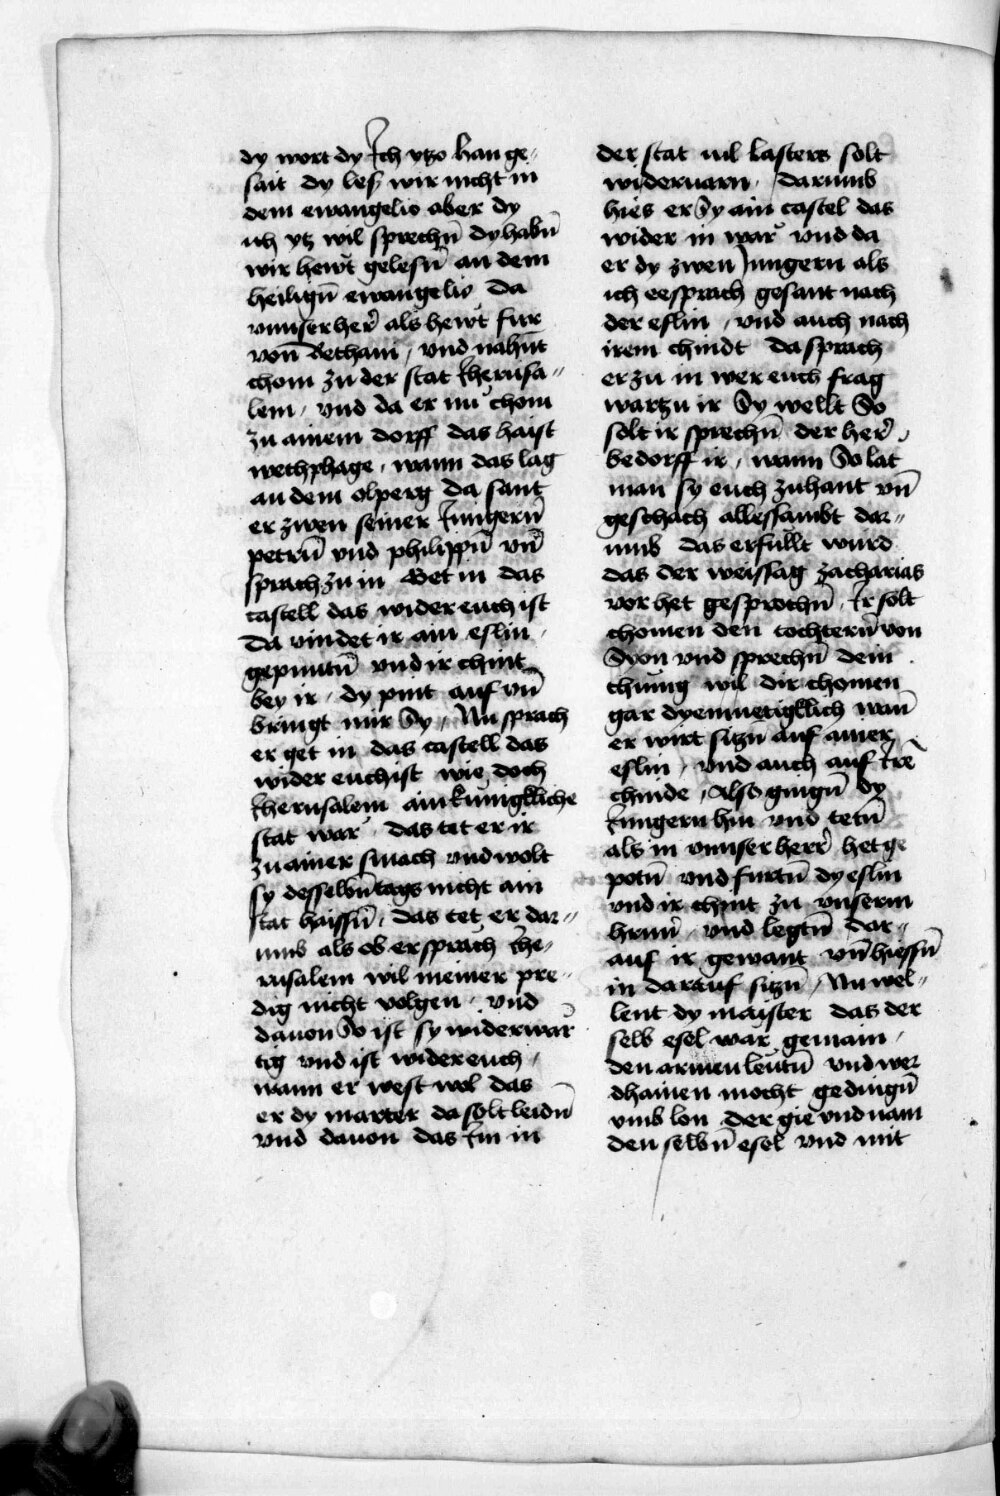 dy wort dy Ich ytzo han ge-
sait dy les wir nicht in
dem ewangelio aber dy
ich ytz wil sprechn̄ dy habn̄
wir hewt gelesn̄ an dem
heilign̄ ewangelio Da
vnnser her̄ als hewt fur
von̄ Bethani, vnd nahn̄t
chom zu der stat Iherusa-
lem, vnd da er nu chom
zu ainem dorff das haist
wethphage, wann das lag
an dem olperg da sant
er zwen seiner Iungern̄
petrū vnd philippū vn̄
sprach zu in Get in das
castell das wider euch ist
Da vindet ir ain eslin,
gepuntn̄ vnd ir chint
bey ir, dy pint auf vn̄
bringt mir Sy, Nu sprach
er get in das castell das
wider euch ist wie doch
Iherusalem ain kunigkliche
stat war, das tet er ir
zu ainer smach vnd wolt
sy desselbn̄ tags nicht ain
stat haissn̄, das tet er dar-
umb als ob er sprach Ihe-
rusalem wil meiner pre-
dig nicht volgen, vnd
dauon So ist sy widerwar̄
tig vnd ist wider euch,
wann er west wol das
er dy marter da solt leidn̄
vnd dauon das Im in
der stat uil lasters solt
wideruarn, Darumb
hies er Sy ain castel das
wider in war vnd da
er dy zwen Iungern als
ich eesprach gesant nach
der eslin, vnd auch nach
irem chindt Da sprach
er zu in wer euch frag
warzu ir Sy wellt So
solt ir sprechn̄ der her̄
bedorff ir, wann So lat
man sy euch zuhant vn̄
geschach allessambt dar-
umb das erfullt wurd
das der weissag zacharias
vor het gesprochn̄ Ir solt
chomen den tochtern̄ von
Syon vnd sprechn̄ dein
chunig wil dir chomen
gar dyemuetigklich wan̄
er wirt sitzn auf ainer
eslin, vnd auch auf Irē
chinde, Also gingn̄ dy
Iungern hin vnd tetn̄
als in vnnser herr̄ het ge
potn̄ vnd furtn̄ dy eslin
vnd ir chint zu vnserm
hernn̄, vnd legtn̄ dar-
auf ir gewant vn̄ hiessn̄
in darauf sitzn̄, Nu wel-
lent dy maister das der
selb esel war gemain,
den armen leutn̄ vnd wer
dhainen mocht gedingn̄
vmb lon der gie vnd nam
den selbn̄ esel vnd mit